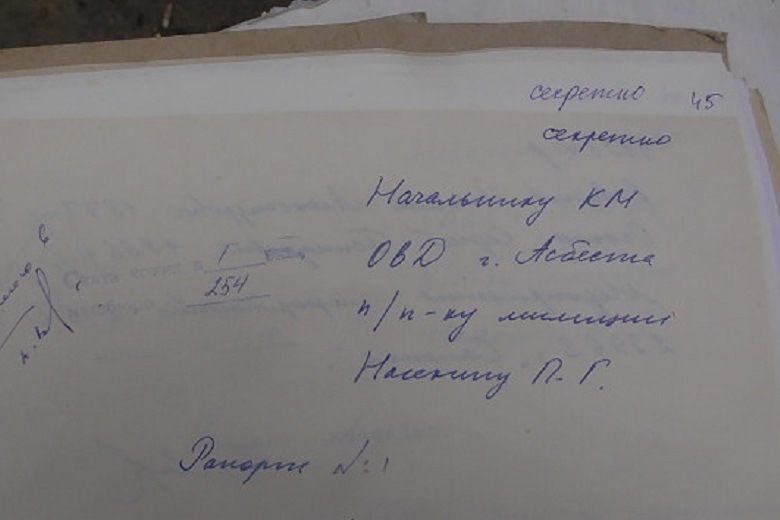 секретно 45
секретно
Начальнику КМ
ОВД г. Асбеста
п/п-ку милиции
Насенину П.Г.
1
254
Рапорт №1